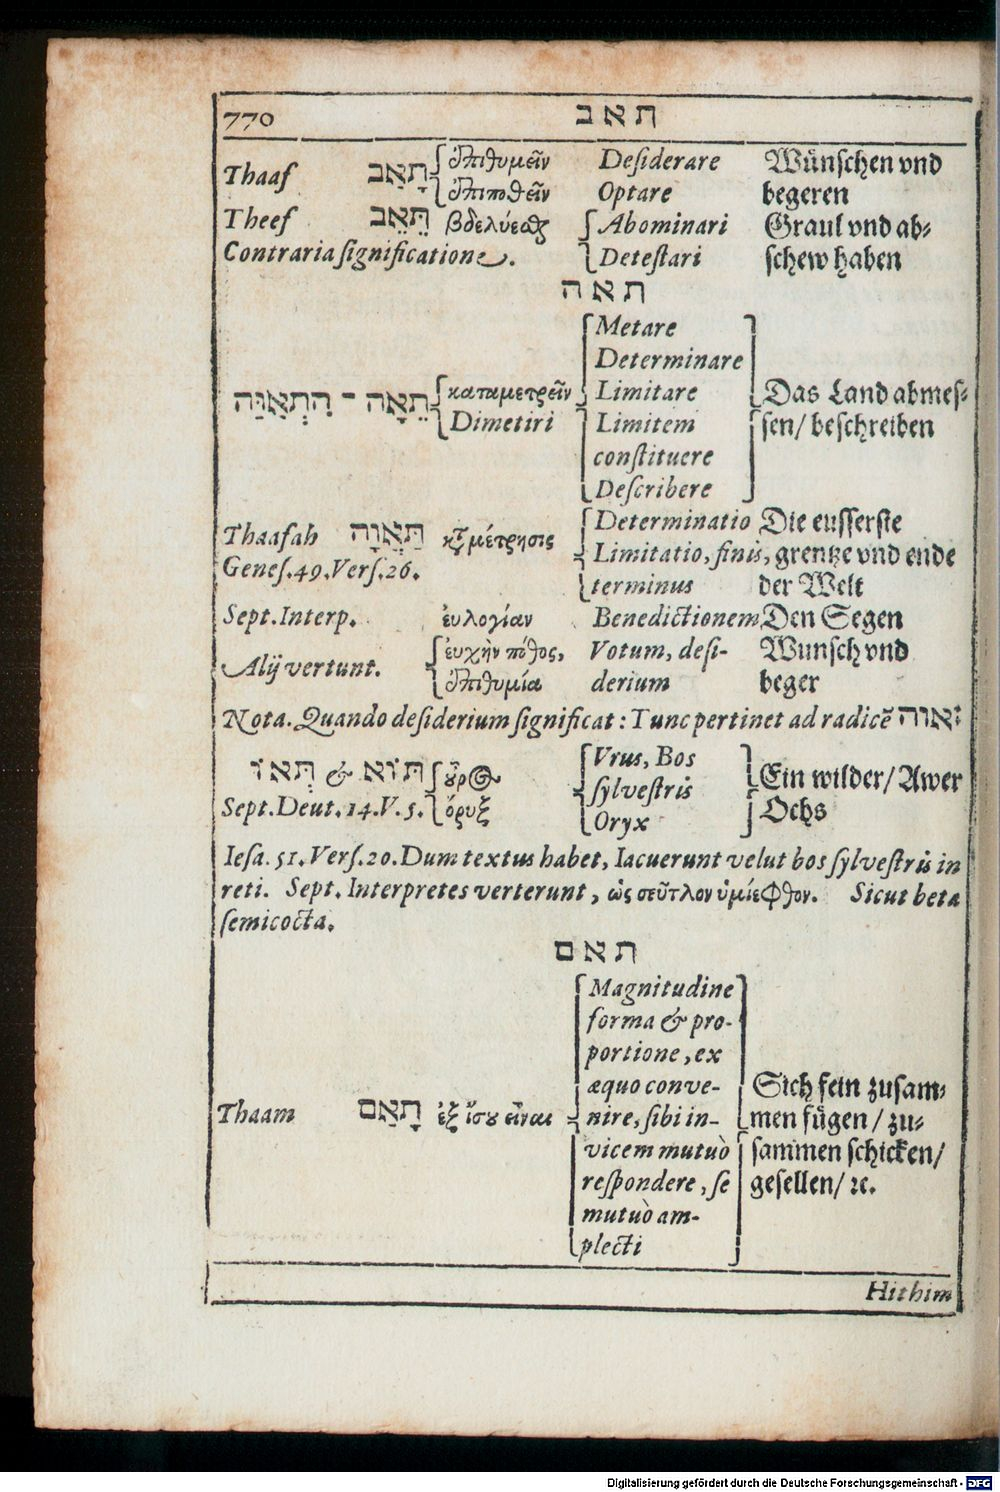 770 תאב
Thaaf תָּאַב ἐπιθυμεῖν Desiderare Wünschen vnd
ἐπιποθεῖν Optare begeren
Theef תֵּאֵב βδελύεσθαι Abominari Graul vnd ab-
Contraria significatione. Detestari schew haben
תאה
Metare
Determinare
תֵאָה - הִתְאַוֵּה καταμετρεῖν Limitare Das Land abmes-
Dimetiri Limitem sen/ beschreiben
constituere
Describere
Thaafah תַּאֲוָה καταμέτρησις Determinatio Die eusserste
Genes. 49. Vers. 26. Limitatio, finis, grentze vnd ende
terminus der Welt
Sept. Interp. ἐυλογίαν Benedictionem Den Segen
Alij vertunt. ἐυχὴν πόθος, Votum, desi- Wunsch vnd
ἐπιθυμία derium beger
Nota. Quando desiderium significat: Tunc pertinet ad radicē
Vrus, Bos
תּוֹא & תְּאוֹ sylvestris Ein wilder/ Awer
Sept. Deut. 14. V. 5. ὄρυξ Oryx Ochs
Iesa. 51. Vers. 20. Dum textus habet, Iacuerunt velut bos sylvestris in
reti. Sept. Interpretes verterunt, ὡς σεῦτλον ἡμίεφθον. Sicut beta
semicocta.
תאם
Magnitudine
forma & pro-
portione, ex
æquo conve- Sich fein zusam-
Thaam תָּאַם ἐξ ἴσου εἶναι nire, sibi in- men fügen/ zu-
vicem mutuò sammen schicken/
respondere, se gesellen/ ꝛc.
mutuò am-
plecti
Hithim
Digitalisierung gefördert durch die Deutsche Forschungsgemeinschaft - DFG